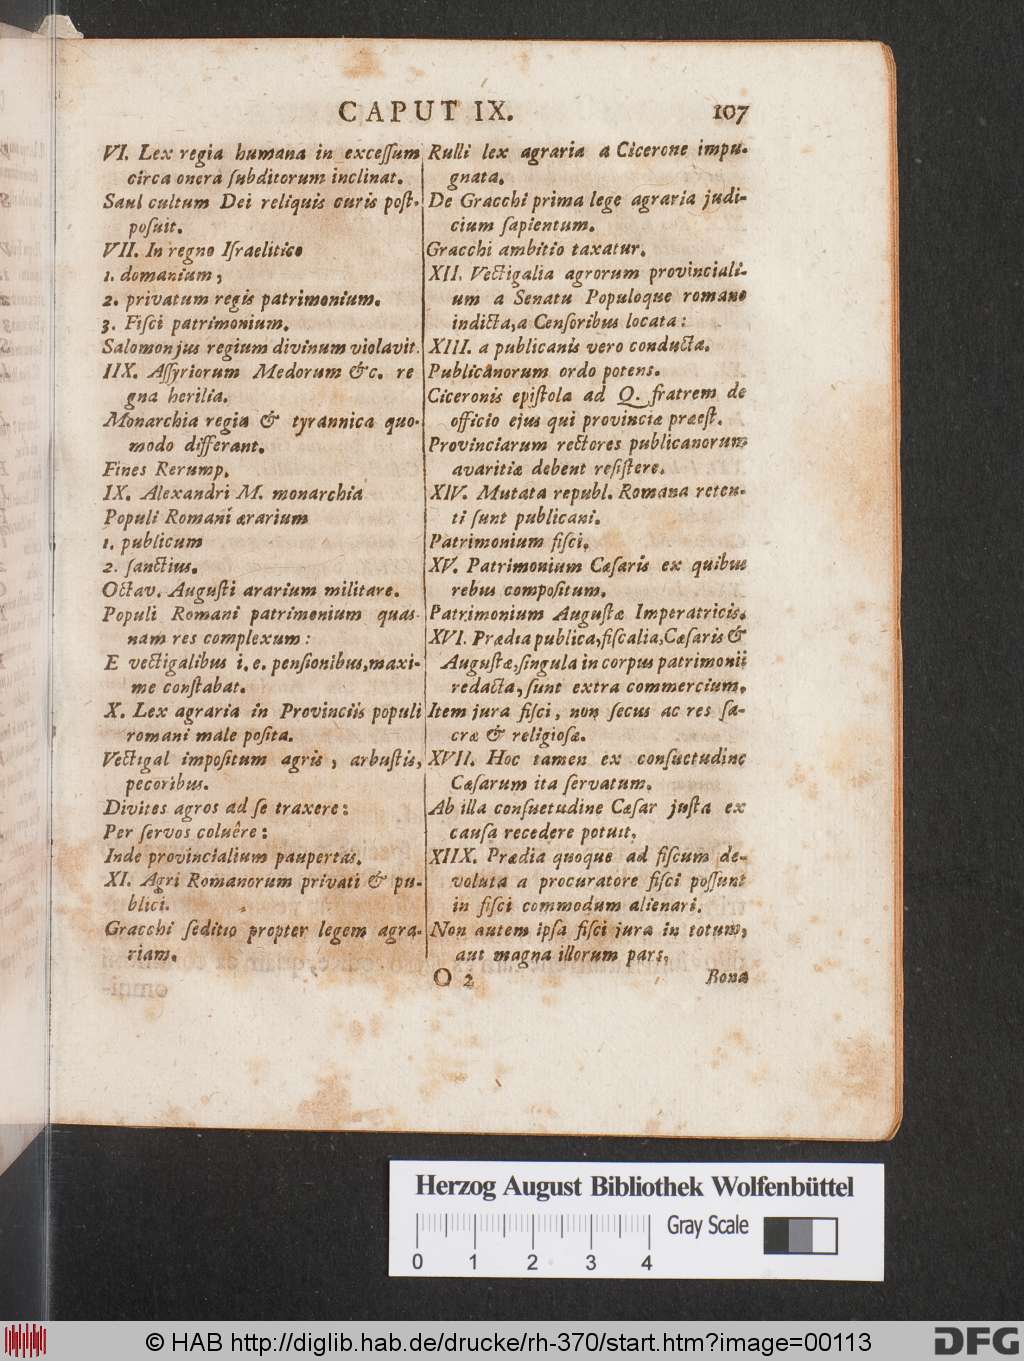 CAPUT IX. 107
VI. Lex regia humana in excessum
circa onera subditorum inclinat.
Saul cultum Dei reliquis curis post-
posuit.
VII. In regno Israelitico
1. domanium;
2. privatum regis patrimonium.
3. Fisci patrimonium.
Salomon jus regium divinum violavit.
IIX. Assyriorum Medorum &c. re
gna herilia.
Monarchia regia & tyrannica quo-
modo differant.
Fines Rerump.
IX. Alexandri M. monarchia
Populi Romani ærarium
1. publicum
2. sanctius.
Octav. Augusti ararium militare.
Populi Romani patrimenium quas-
nam res complexum:
E vectigalibus i. e. pensionibus, maxi-
me constabat.
X. Lex agraria in Provinciis populi
romani male posita.
Vectigal impositum agris, arbustis,
pecoribus.
Divites agros ad se traxere:
Per servos coluêre:
Inde provincialium paupertas.
XI. Agri Romanorum privati & pu-
blici.
Gracchi seditio propter legem agra-
riam.
Rulli lex agraria a Cicerone impu-
gnata.
De Gracchi prima lege agraria judi-
cium sapientum.
Gracchi ambitio taxatur.
XII. Vectigalia agrorum provinciali-
um a Senatu Populoque romano
indicta, a Censoribus locata:
XIII. a publicanis vero conducta.
Publicanorum ordo potens.
Ciceronis epistola ad Q. fratrem de
officio ejus qui provinciæ præest.
Provinciarum rectores publicanorum
avaritiæ debent resistere.
XIV. Mutata republ. Romana reten-
ti sunt publicani.
Patrimonium fisci.
XV. Patrimonium Cæsaris ex quibus
rebus compositum.
Patrimonium Augustæ Imperatricis.
XVI. Prædia publica, fiscalia, Cæsaris &
Augustæ, singula in corpus patrimonii
redacta, sunt extra commercium.
Item jura fisci, non secus ac res sa-
cræ & religiosæ.
XVII. Hoc tamen ex consuetudine
Cæsarum ita servatum.
Ab illa consuetudine Cæsar justa ex
causa recedere potuit.
XIIX. Prædia quoque ad fiscum de-
voluta a procuratore fisci possunt
in fisci commodum alienari.
Non autem ipsa fisci jura in totum,
aut magna illorum pars.
O 2 Bona
Herzog August Bibliothek Wolfenbüttel
Gray Scale
0 1 2 3 4
© HAB http://diglib.hab.de/drucke/rh-370/start.htm?image=00113
DFG